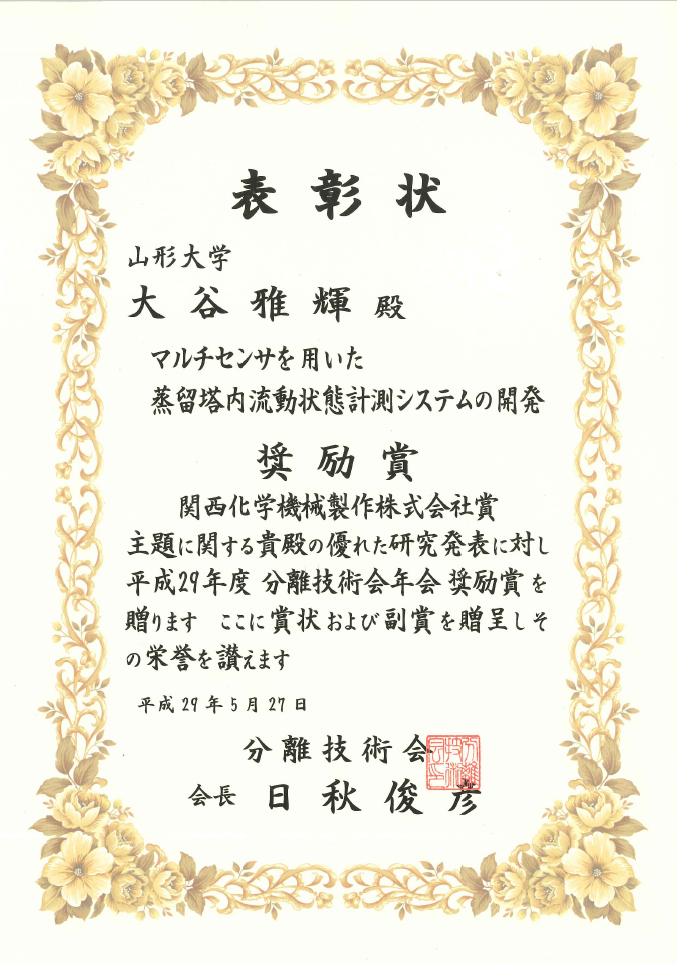 表彰状
山形大学
大谷雅輝 殿
マルチセンサを用いた
蒸留塔内流動状態計測システムの開発
奨励賞
関西化学機械製作株式会社賞
主題に関する貴殿の優れた研究発表に対し
平成29年度 分離技術会年会 奨励賞を
贈ります ここに賞状および副賞を贈呈しそ
の栄誉を讃えます
平成29年5月27日
分離技術会
会長 日秋俊彦